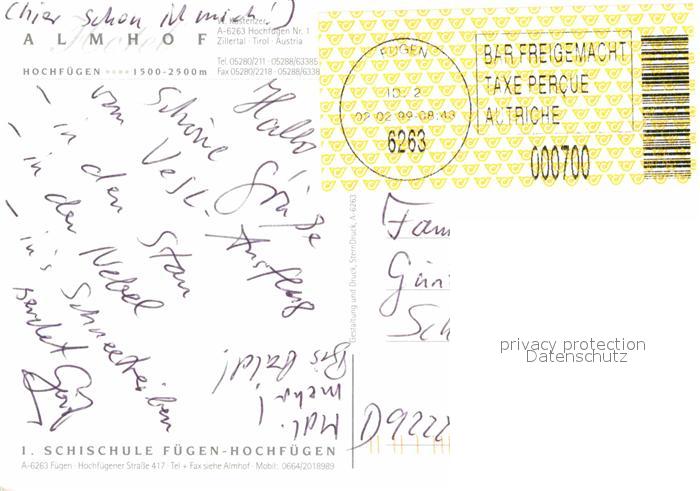 (hier schon ich mich!)
ALMHOF
A-6263 Hochfügen Nr. 1
Zillertal · Tirol · Austria
Tel. 05280/211 · 05288/63385
Fax 05280/2218 · 05288/6338
HOCHFÜGEN **** 1500-2500m
Hallo
Schöne Grüße
vom Verl. Ausflug
- in den Stau
- in den Nebel
- in's Schneetreiben
sendet
Bis bald!
mehr!
FÜGEN
02-02-99-08:43
6263
BAR FREIGEMACHT
TAXE PERÇUE
AUTRICHE
000700
Gestaltung und Druck, SternDruck, A-6263
Fam
Gün
Sch
D 9222
privacy protection
Datenschutz
1. SCHISCHULE FÜGEN-HOCHFÜGEN
A-6263 Fügen · Hochfügener Straße 417 · Tel + Fax siehe Almhof · Mobil: 0664/2018989